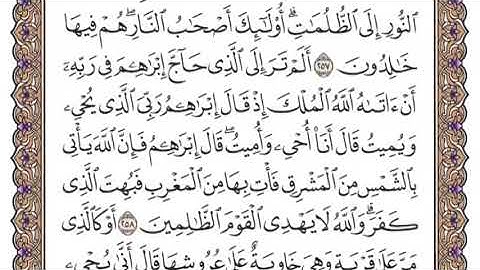 ٱلنُّورِ إِلَى ٱلظُّلُمَٰتِۗ أُو۟لَٰٓئِكَ أَصْحَٰبُ ٱلنَّارِۖ هُمْ فِيهَا
خَٰلِدُونَ ٢٥٧ أَلَمْ تَرَ إِلَى ٱلَّذِى حَآجَّ إِبْرَٰهِـۧمَ فِى رَبِّهِۦٓ
أَنْ ءَاتَىٰهُ ٱللَّهُ ٱلْمُلْكَ إِذْ قَالَ إِبْرَٰهِـۧمُ رَبِّىَ ٱلَّذِى يُحْىِۦ
وَيُمِيتُ قَالَ أَنَا۠ أُحْىِۦ وَأُمِيتُۖ قَالَ إِبْرَٰهِـۧمُ فَإِنَّ ٱللَّهَ يَأْتِى
بِٱلشَّمْسِ مِنَ ٱلْمَشْرِقِ فَأْتِ بِهَا مِنَ ٱلْمَغْرِبِ فَبُهِتَ ٱلَّذِى
كَفَرَۗ وَٱللَّهُ لَا يَهْدِى ٱلْقَوْمَ ٱلظَّٰلِمِينَ ٢٥٨ أَوْ كَٱلَّذِى
مَرَّ عَلَىٰ قَرْيَةٍ وَهِىَ خَاوِيَةٌ عَلَىٰ عُرُوشِهَا قَالَ أَنَّىٰ يُحْىِۦ